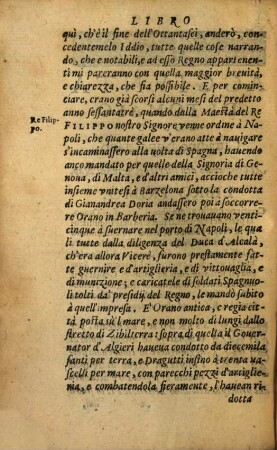 LIBRO
quì, ch'è il fine dell'Ottantasei, anderò, con-
cedentemelo Iddio, tutte quelle cose narran-
do, che e notabili, e ad esso Regno appartenen-
ti mi pareranno con quella maggior breuità,
e chiarezza, che fia possibile. E per comin-
ciare, erano già scorsi alcuni mesi del predetto
anno sessantatrè, quando dalla Maestà del Re
Re Filip-
po.
FILIPPO nostro Signore venne ordine à Na-
poli, che quante galee v'erano atte à nauigare
s'incaminassero alla volta di Spagna, hauendo
anco mandato per quelle della Signoria di Ge-
noua, di Malta, e d'altri amici, accioche tutte
insieme vnitesi à Barzelona sotto la condotta
di Gianandrea Doria andassero poi à soccorre-
re Orano in Barberia. Se ne trouauano venti-
cinque à suernare nel porto di Napoli, le qua
li tutte dalla diligenza del Duca d'Alcalà,
ch'era allora Vicerè, furono prestamente fat-
te guernire e d'artiglieria, e di vittouaglia, e
di munitione; e caricatele di soldati Spagnuo-
li tolti da' presidij del Regno, le mandò subito
à quell'impresa. E' Orano antica, e regia cit-
tà posta sù'l mare, e non molto di lungi dallo
stretto di Zibilterra: sopra di quella il Gouer-
nator d'Algieri haueua condotto da diecemila
fanti per terra, e Dragutti insino à trenta va-
scelli per mare, con parecchi pezzi d'artiglie-
ria, e combatendola fieramente, l'hauean ri-
dotta